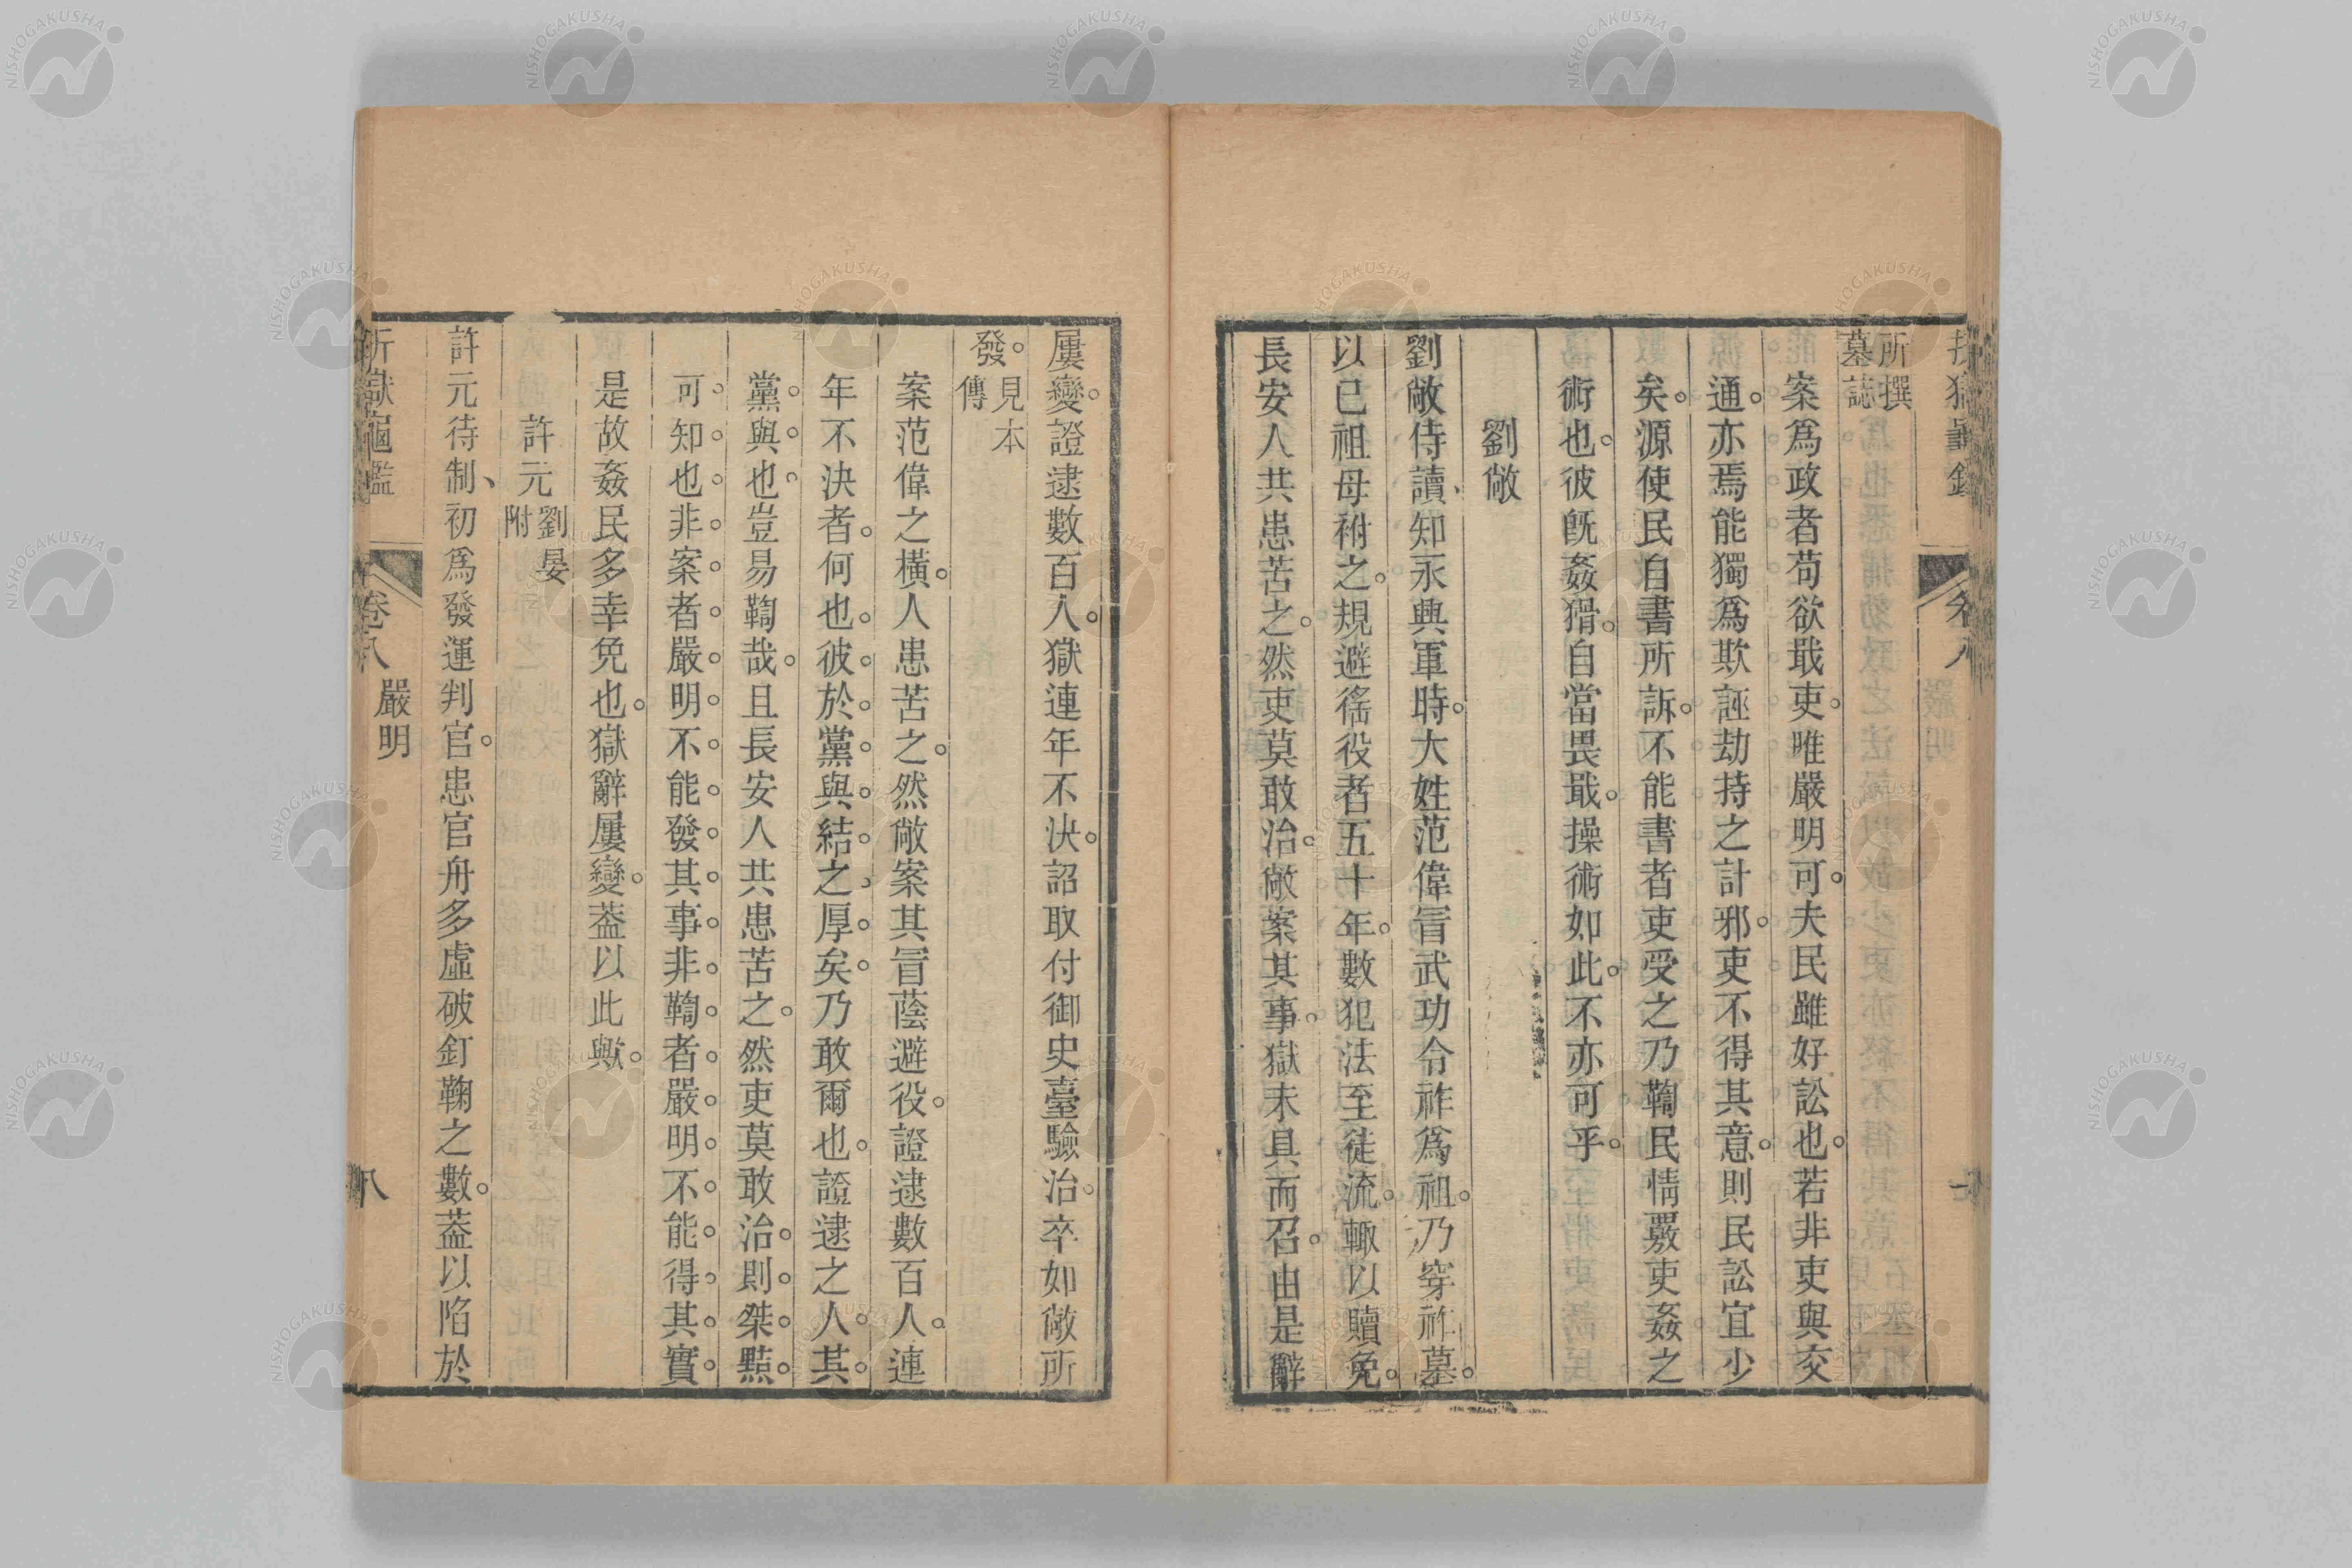 折獄龜鑑
卷八
嚴明
七
所撰
墓誌
案爲政者苟欲戢吏。唯嚴明可。夫民雖好訟也。若非吏與交
通。亦焉能獨爲欺誣劫持之計邪。吏不得其意。則民訟宜少
矣。源使民自書所訴。不能書者吏受之乃鞫民情覈吏姦之
術也。彼旣姦猾。自當畏戢。操術如此。不亦可乎。
劉敞
劉敞侍讀、知永興軍時。大姓范偉冒武功令祚爲祖。乃穿祚墓。
以已祖母祔之。規避徭役者五十年。數犯法至徒流。輒以贖免。
長安人共患苦之。然吏莫敢治。敞案其事。獄未具而召。由是辭
屢變。證逮數百人。獄連年不決。詔取付御史臺驗治。卒如敞所
發。見本
傳
案范偉之橫。人患苦之。然敞案其冒蔭避役。證逮數百人。連
年不決者。何也。彼於黨與。結之厚矣。乃敢爾也。證逮之人。其
黨。與也。豈易鞫哉。且長安人共患苦之。然吏莫敢治。則桀黠。
可知也。非案者嚴明不能發其事。非鞫者嚴明不能得其實。
是故姦民多幸免也。獄辭屢變。葢以此歟。
許元 劉晏
附
許元待制、初爲發運判官。患官舟多虛破釘鞠之數。葢以陷於
折獄龜鑑
卷八
嚴明
八